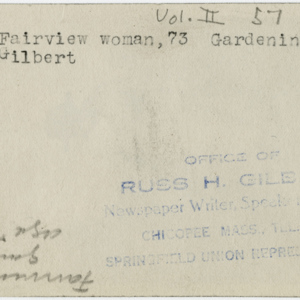 Vol. II 57
Fairview woman, 73 Gardenin
Gilbert
OFFICE OF
RUSS H. GILB
Newspaper Writer, Specia
CHICOPEE MASS., TEL
SPRINGFIELD UNION REPRE